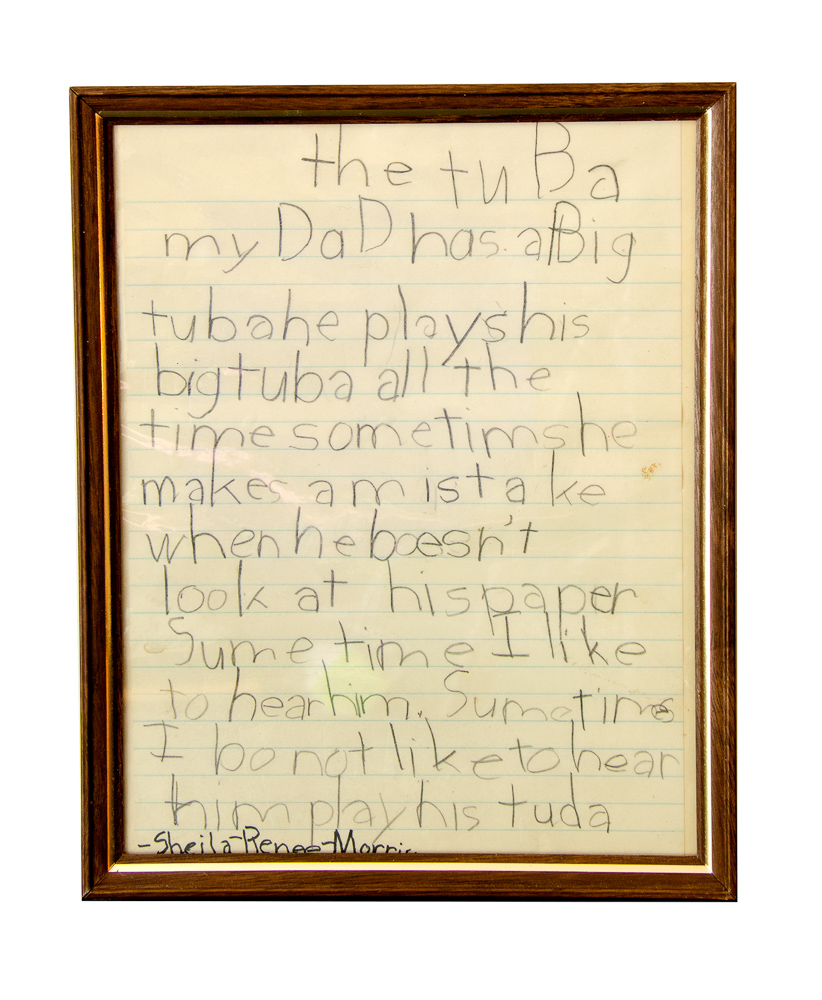 the tuBa
my DaD has a Big
tuba he plays his
big tuba all the
time sometims he
makes a mistake
when he boesn't
look at his paper
Sume time I like
to hear him. Sumetime
I bo not like to hear
him play his tuda
-Sheila-Renee-Morris